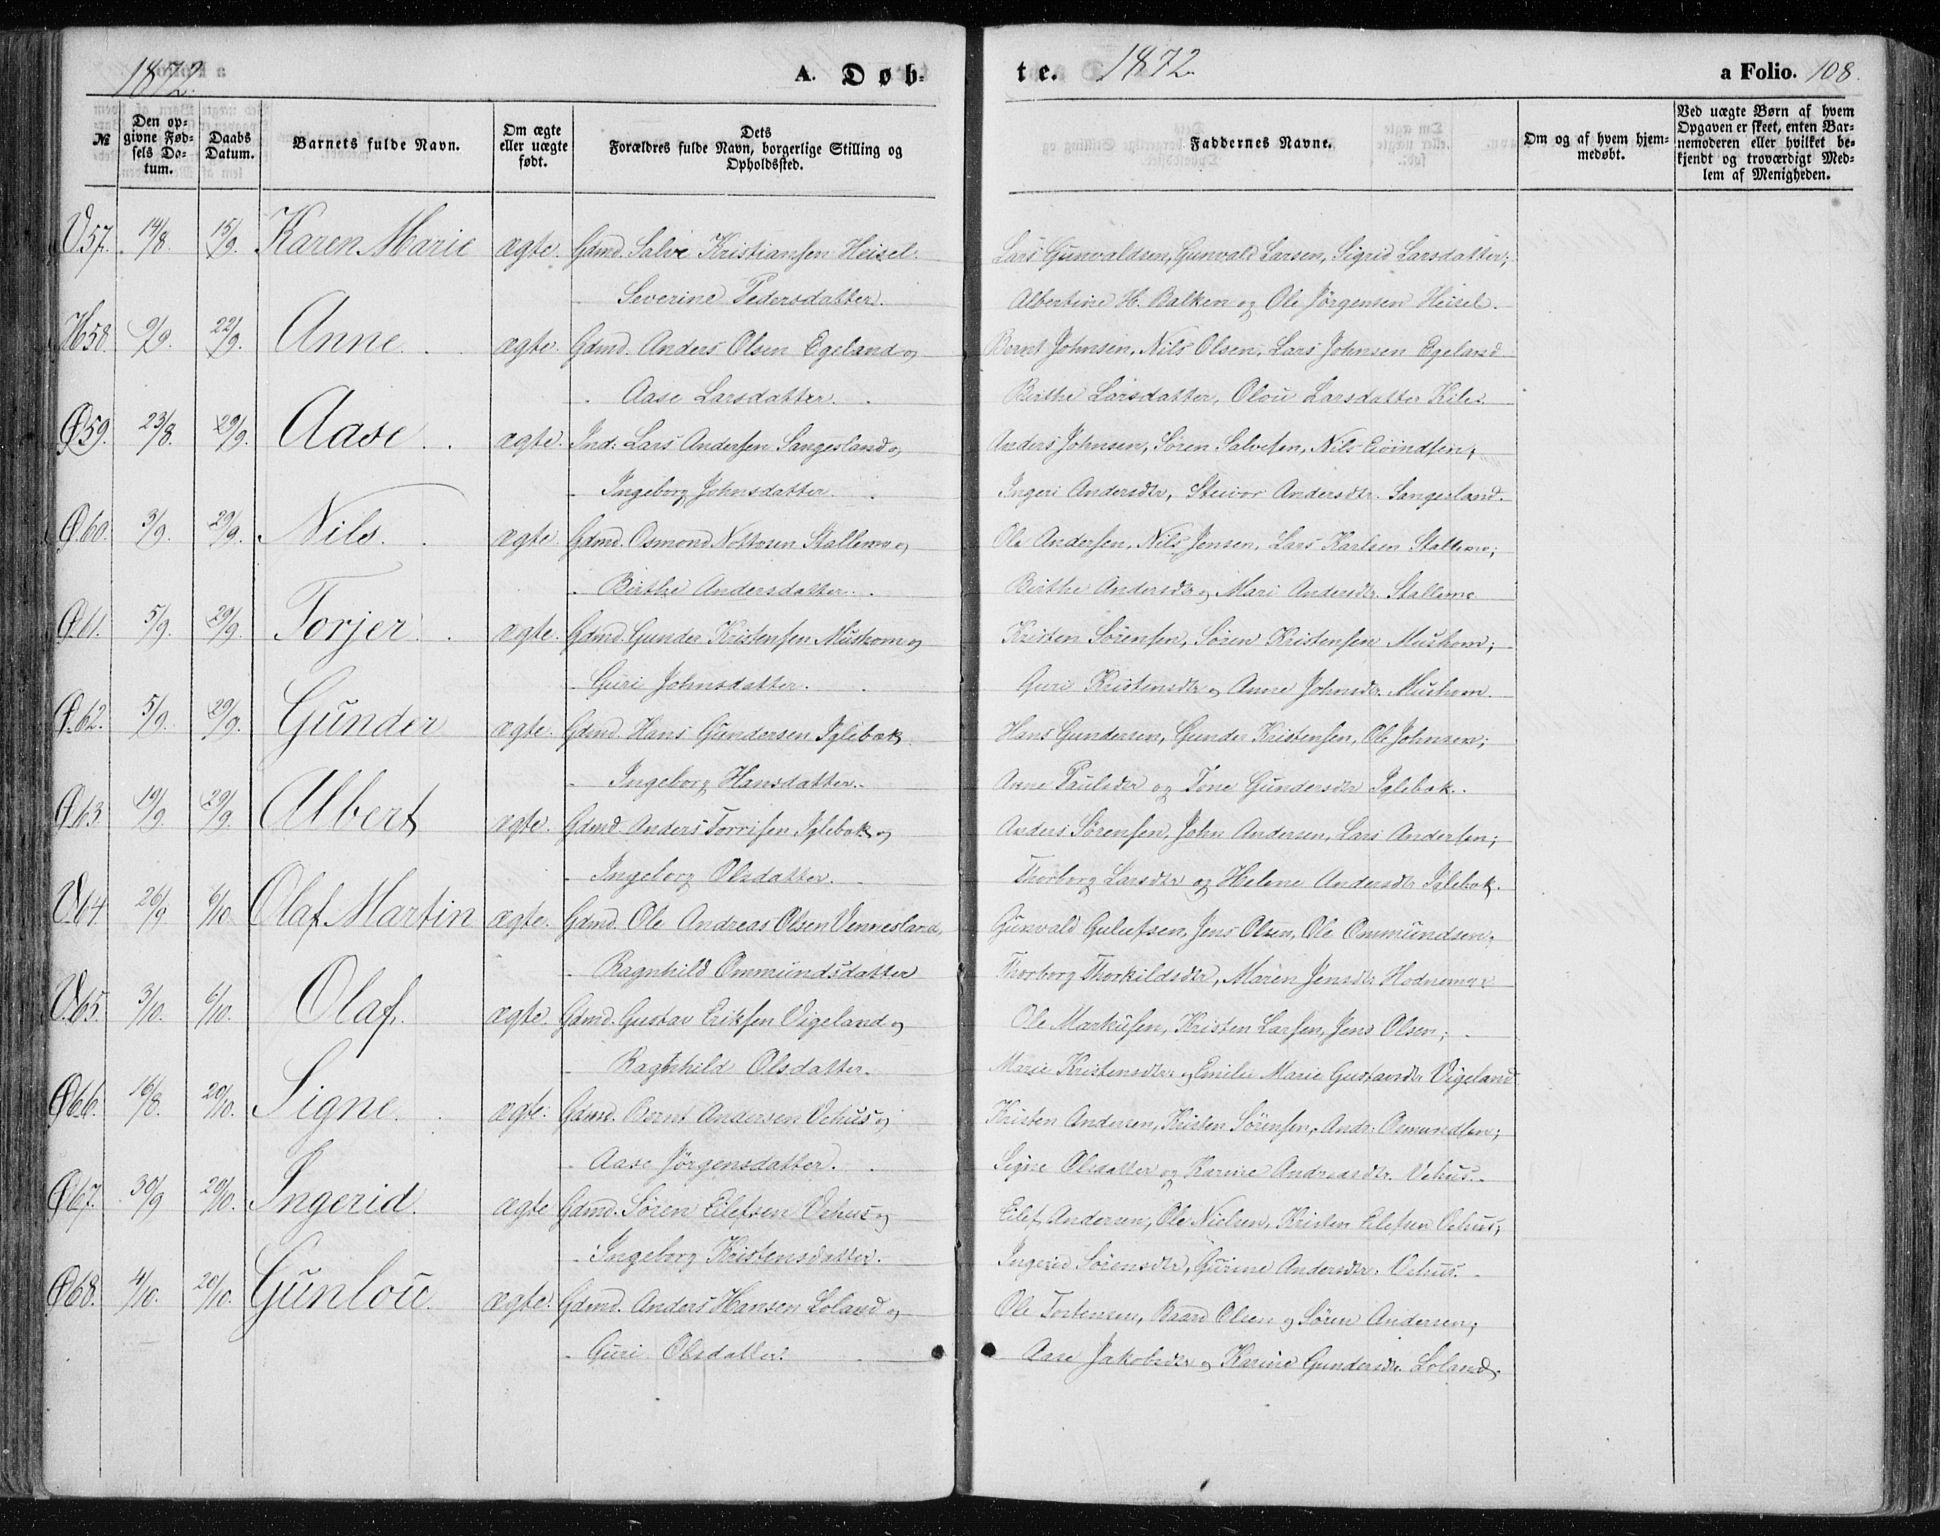 1872. A. Døb- te. 1872. a Folio. 108.
№ Den opgivne Fødsels Datum. Daabs Datum. Barnets fulde Navn. Om ægte eller uægte født. Dets Forældres fulde Navn, borgerlige Stilling og Opholdssted. Faddernes Navne. Om og af hvem hjemmedøbt. Ved uægte Børn af hvem Opgaven er skeet, enten Barnemoderen eller hvilket bekjendt og troværdigt Medlem af Menigheden.
V57. 14/8. 15/9. Karen Marie ægte. Gdmd. Salve Kristiansen Heisel. Lars Gunvaldsen, Gunvald Larsen, Sigrid Larsdatter;
Severine Pedersdatter. Albertine H. Balken og Ole Jörgensen Heisel.
H58. 9/9. 22/9. Anne. ægte. Gdmd. Anders Olsen Egeland og Bernt Johnsen, Nils Olsen, Lars Johnsen Egeland
Aase Larsdatter. Birthe Larsdatter, Olou Larsdatter Kile.
Ø59. 23/8. 29/9. Aase. ægte. Ind. Lars Andersen Sangesland og Anders Johnsen, Sören Salvesen, Nils Eivindsen,
Ingeborg Johnsdatter. Ingeri Andersdtr, Steivor Andersdtr. Sangesland.
Ø60. 3/9. 29/9. Nils. ægte. Gdmd. Osmond Nottosen Stallemo og Ole Andersen, Nils Jensen, Lars Karlsen Stallemo;
Birthe Andersdatter. Birthe Andersdtr og Mari Andersdtr. Stallemo
Ø61. 5/9. 29/9. Torjer. ægte. Gdmd. Gunder Kristensen Mushom og Kristen Sörensen, Sören Kristensen Mushom;
Guri Johnsdatter. Guri Kristensdtr og Anne Johnsdtr. Mushom.
Ø62. 5/9. 29/9. Gunder ægte. Gdmd. Hans Gundersen Iglebæk Hans Gundersen, Gunder Kristensen, Ole Johnsen;
Ingeborg Hansdatter. Anne Paulsdtr og Tone Gundersdtr Iglebæk.
Ø63. 19/9. 29/9. Albert ægte. Gdmd. Anders Torrisen Iglebæk og Anders Sörensen, John Andersen, Lars Andersen;
Ingeborg Olsdatter. Thorborg Larsdtr og Helene Andersdtr Iglebæk.
V64. 26/9 6/10. Olaf Martin ægte. Gdmd. Ole Andreas Olsen Vennesland, Gunvald Gulufsen, Jens Olsen, Ole Ommundsen,
Ragnhild Ommundsdatter Thorborg Thorkildsdtr, Maren Jensdtr Hodnemyr
V65. 3/10. 6/10. Olaf. ægte. Gdmd. Gustav Eriksen Vigeland og Ole Markusen, Kristen Larsen, Jens Olsen;
Ragnhild Olsdatter. Marie Kristensdtr og Emilie Marie Gustavsdtr Vigeland
Ø66. 16/8. 20/10. Signe. ægte. Gdmd. Bernt Andersen Vehus og Kristen Andersen, Kristen Sörensen, Andr. Osmundsen;
Aase Jörgensdatter. Signe Olsdatter og Karine Andreasdtr. Vehus.
Ø67. 30/9 20/10. Ingerid. ægte Gdmd. Sören Eilefsen Vehus og Eilef Andersen, Ole Nielsen, Kristen Eilefsen Vehus,
Ingeborg Kristensdatter. Ingerid Sörensdtr, Gurine Andersdtr. Vehus.
Ø68. 4/10. 20/10. Gunlou. ægte. Gdmd. Anders Hansen Loland og Ole Tostensen, Baard Olsen og Sören Andersen;
Guri Olsdatter. Aase Jakobsdtr og Karine Gundersdtr. Loland.